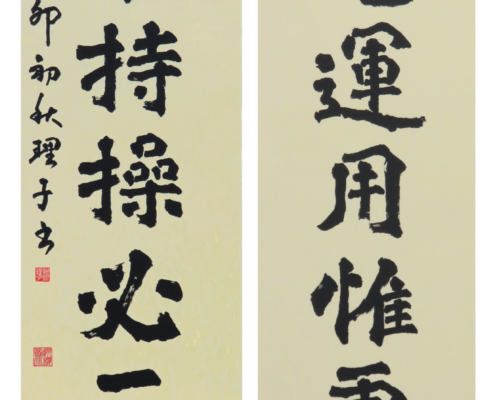 運用惟
持操必一
卯初秋理子书